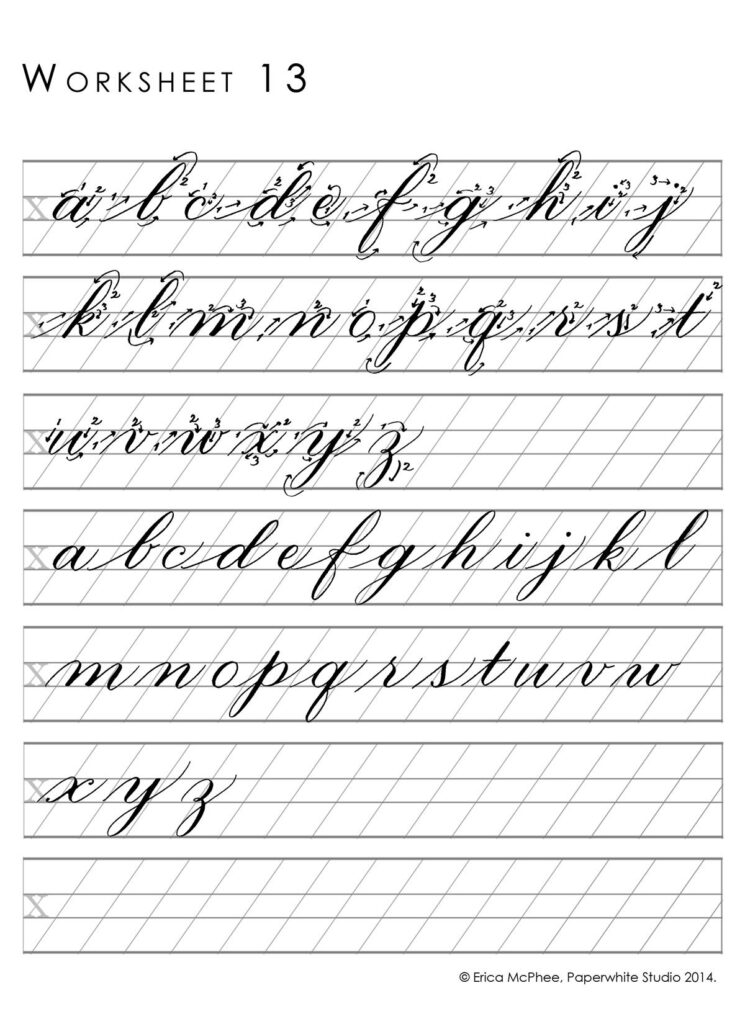 WORKSHEET 13
x a b c d e f g h i j
x k l m n o p q r s t
x u v w x y z
x a b c d e f g h i j k l
x m n o p q r s t u v w
x x y z
x
© Erica McPhee, Paperwhite Studio 2014.